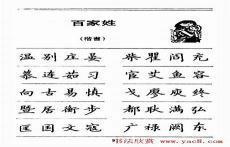 百家姓
(楷書)
温别庄晏 柴瞿阎充
慕连茹习 宦艾鱼容
向古易慎 戈廖庾终
暨居衡步 都耿满弘
匡国文寇 广禄阙东
书法欣赏 www.yac8.com